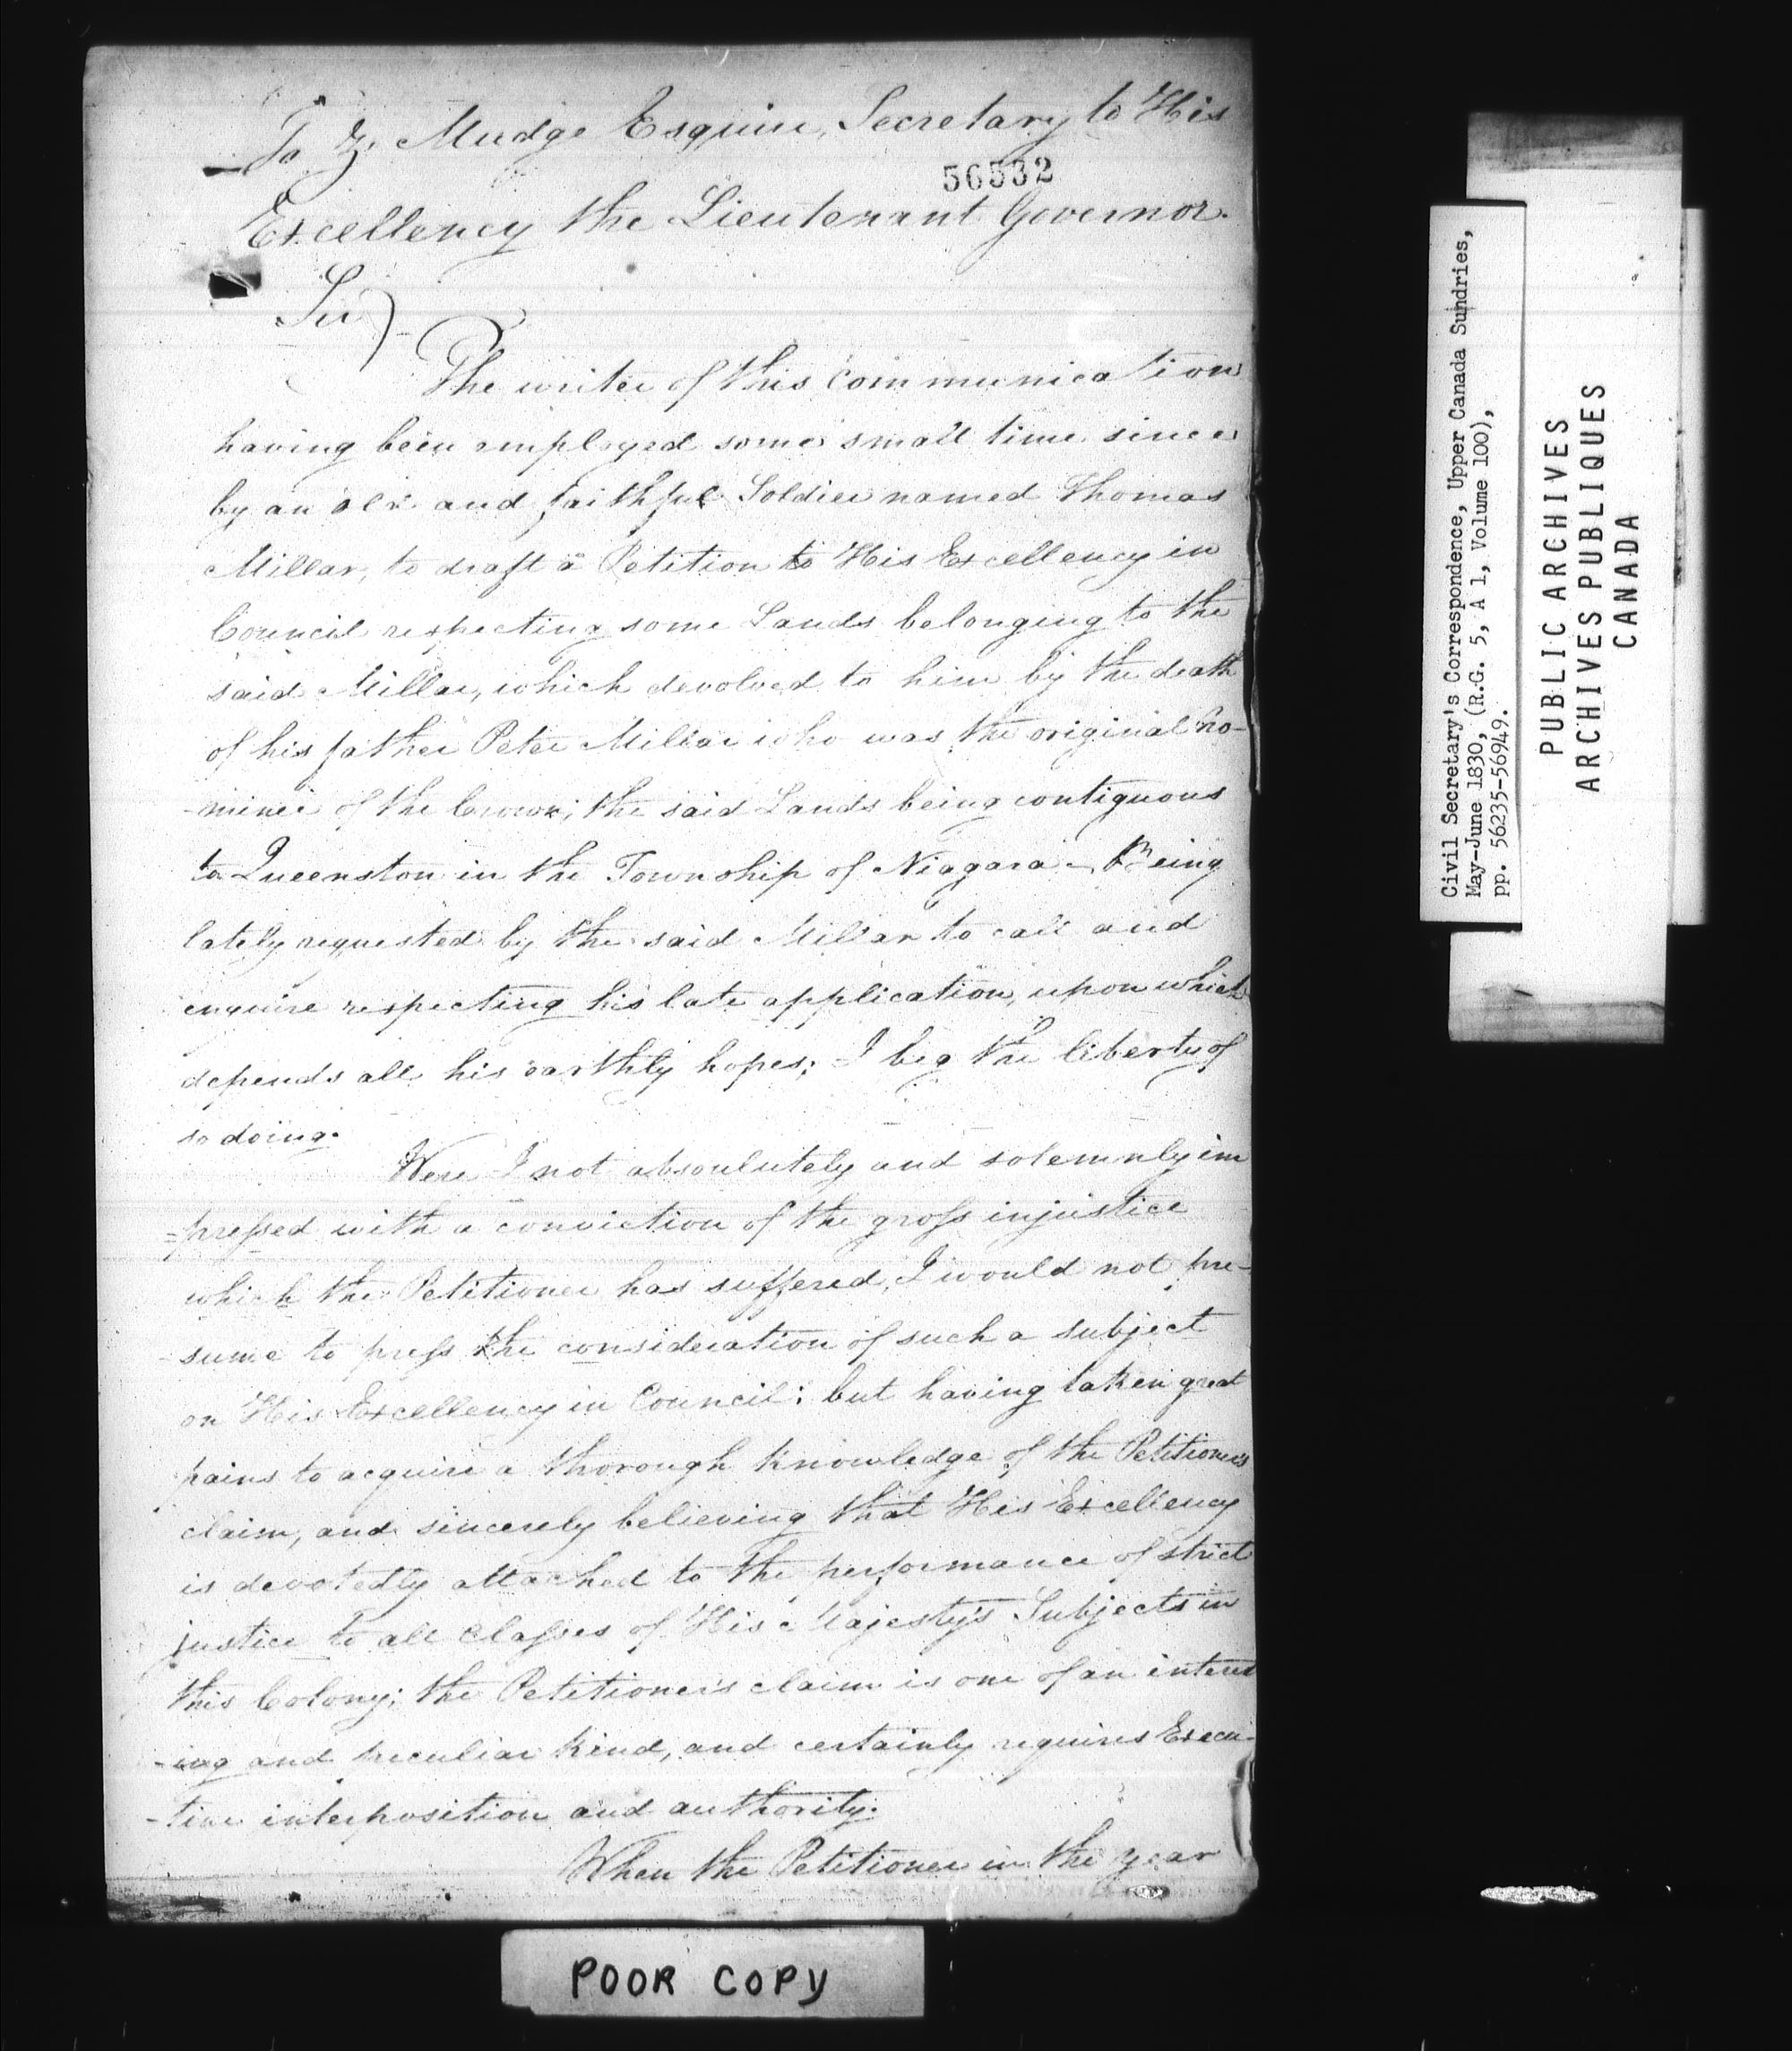 To Z. Mudge Esquire, Secretary to His
56532
Excellency the Lieutenant Governor.
Sir)
The writer of this Communication
having been employed some small time since
by an old and faithful Soldier named Thomas
Millar, to draft a Petition to His Excellency in
Council respecting some Lands belonging to the
said Millar, which devolved to him by the death
of his father Peter Millar who was the original no-
-minee of the Crown; the said Lands being contiguous
to Queenston in the Township of Niagara - Being
lately requested by the said Millar to call and
enquire respecting his late application, upon which
depends all his earthly hopes; I beg the liberty of
so doing.
Were I not absoulutely and solemnly im
=pressed with a conviction of the gross injustice
which the Petitioner has suffered, I would not pre-
-sume to press the consideration of such a subject
on His Excellency in Council; but having taken great
pains to acquire a thorough knowledge of the Petitioner's
claim, and sincerely believing that His Excellency
is devotedly attached to the performance of strict
justice to all Classes of His Majesty's Subjects in
this Colony; the Petitioner's claim is one of an interest
-ing and peculiar kind, and certainly requires Execu-
-tive interposition and authority.
When the Petitioner in the year
POOR COPY
Civil Secretary's Correspondence, Upper Canada Sundries,
May-June 1830, (R.G. 5, A 1, Volume 100),
pp. 56235-56949.
PUBLIC ARCHIVES
ARCHIVES PUBLIQUES
CANADA